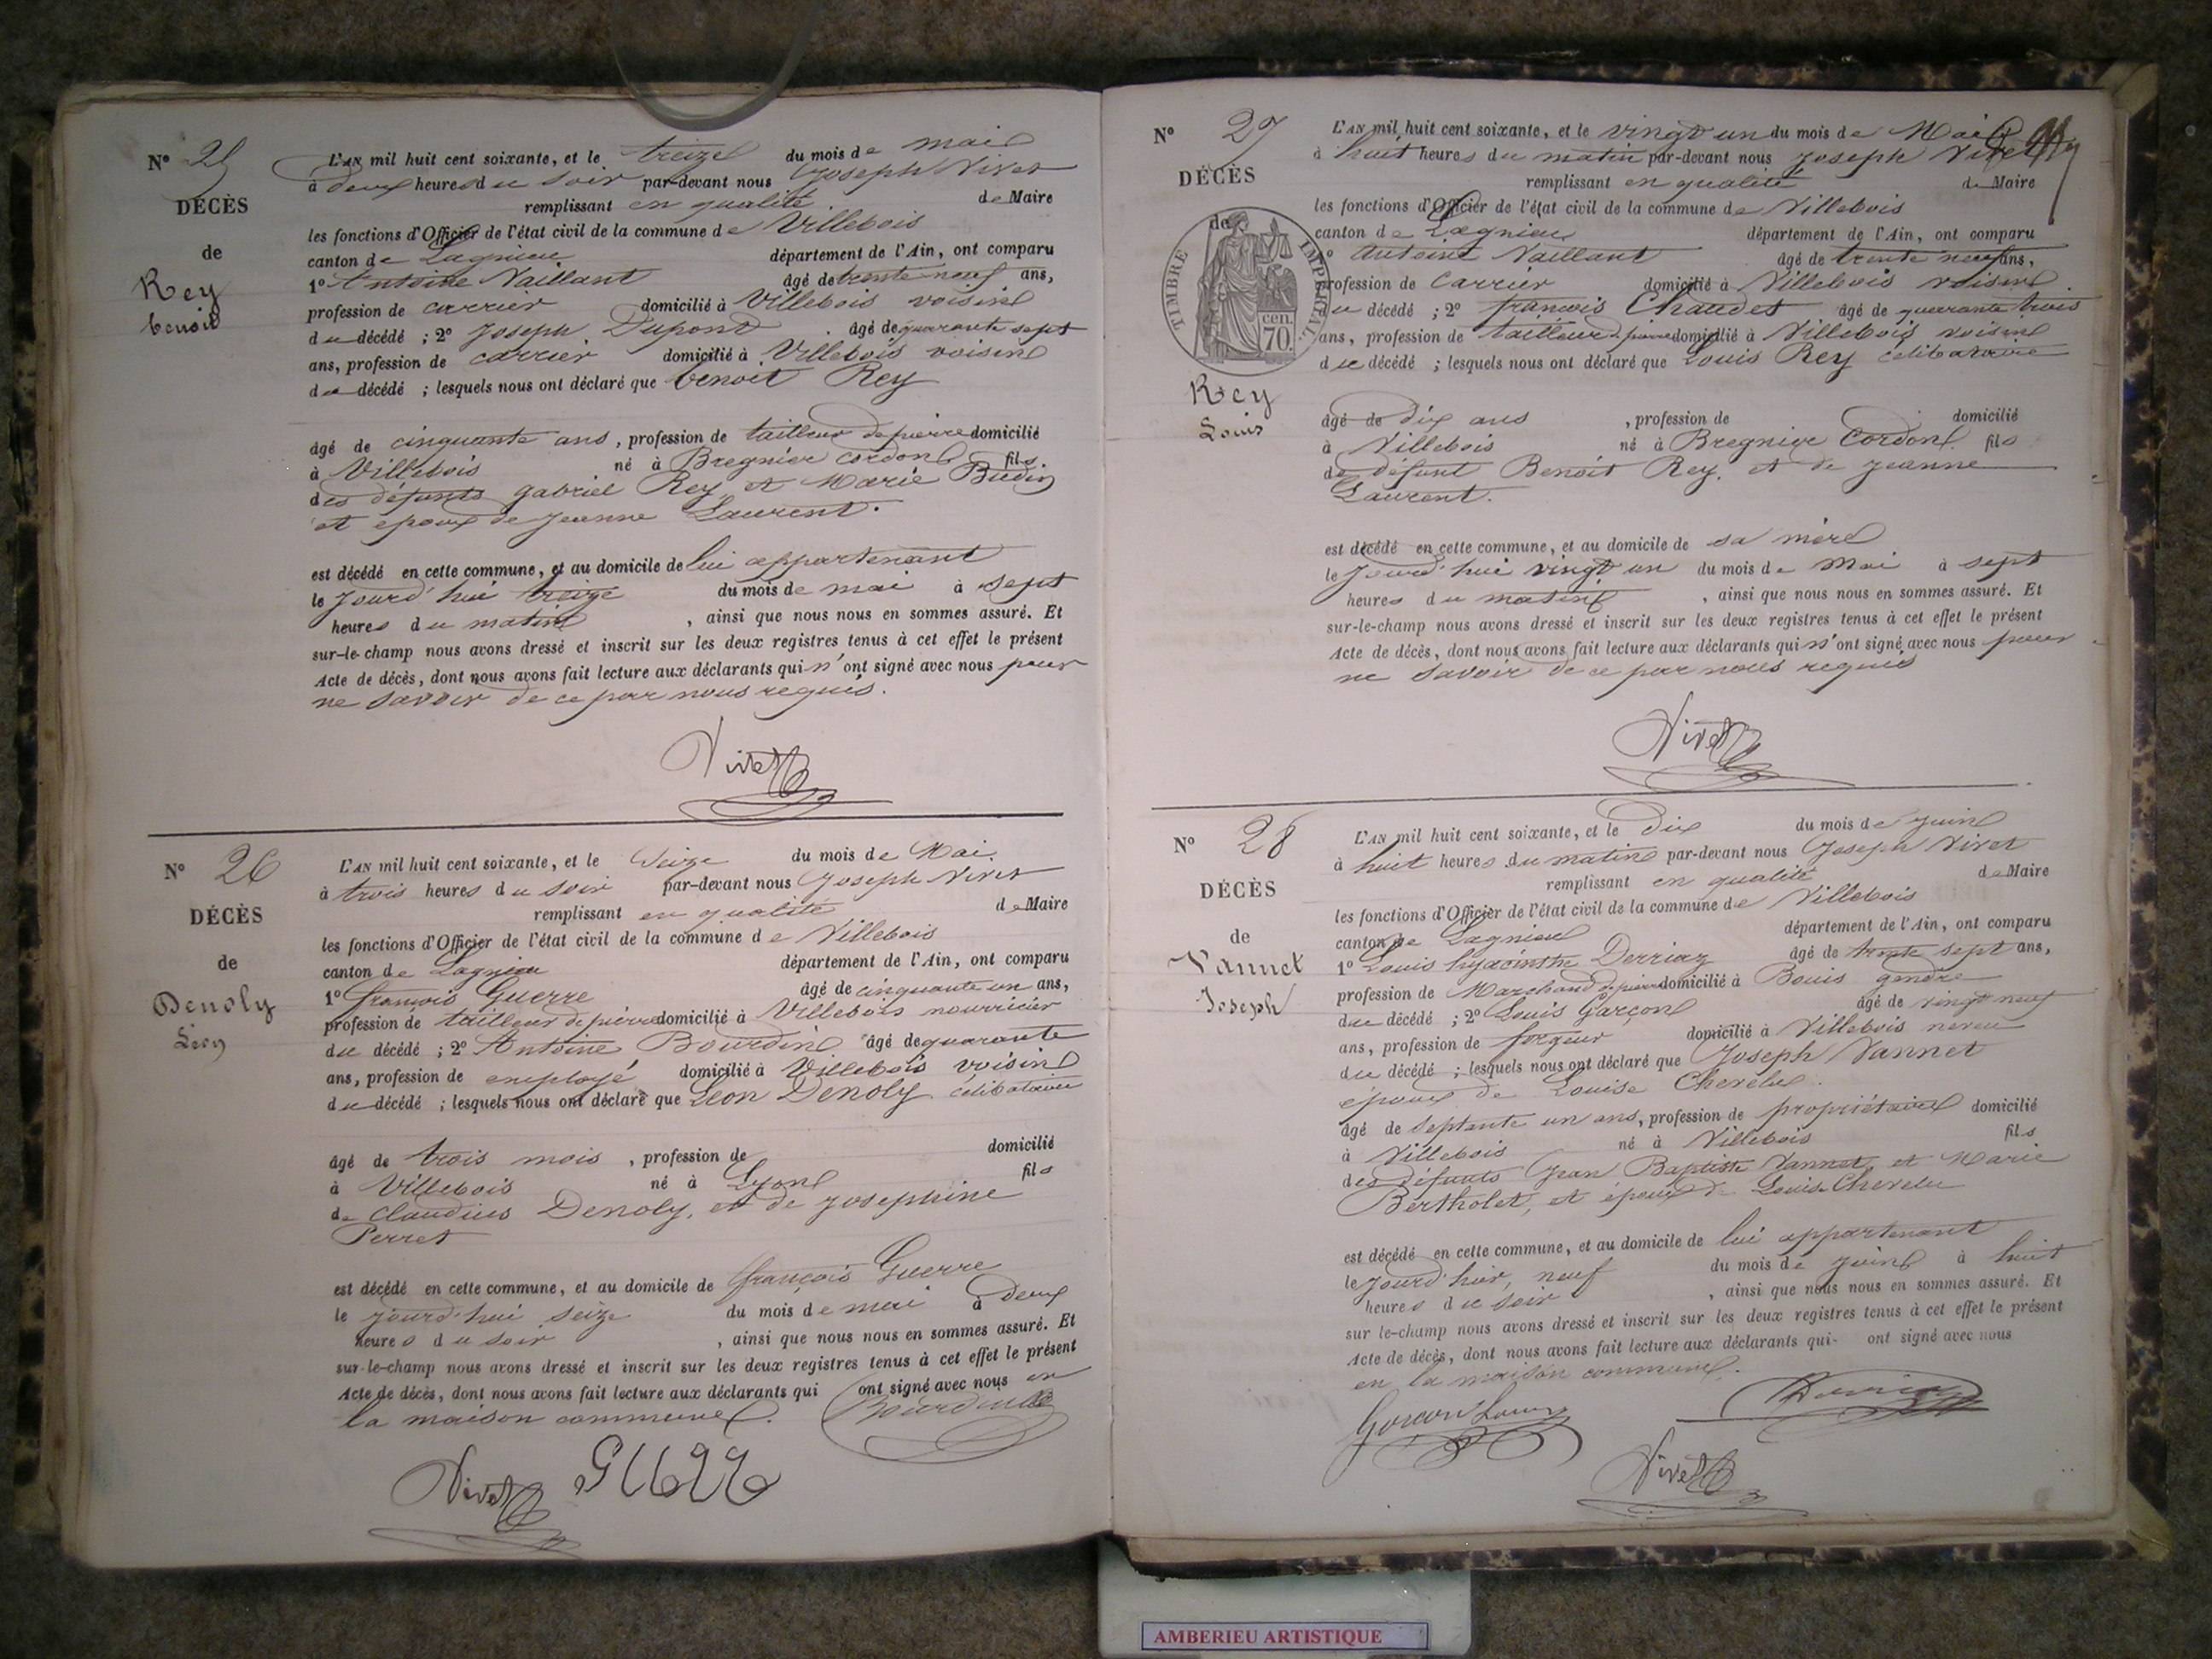 N° 25
DÉCÈS
de
Rey
benoit
L'AN mil huit cent soixante, et le treize du mois de mai
à deux heures du soir par-devant nous Joseph Vivet
remplissant en qualité de Maire
les fonctions d'Officier de l'état civil de la commune de Villebois
canton de Lagnieu département de l'Ain, ont comparu
1° Antoine Vaillant âgé de trente neuf ans,
profession de carrier domicilié à Villebois voisin
du décédé ; 2° Joseph Dupont âgé de quarante sept
ans, profession de carrier domicilié à Villebois voisin
du décédé ; lesquels nous ont déclaré que benoit Rey
âgé de cinquante ans, profession de tailleur de pierre domicilié
à Villebois né à Bregnier cordon fils
des défunts gabriel Rey et Marie Budin
et epoux de jeanne Laurent.
est décédé en cette commune, et au domicile de lui appartenant
le jourd'hui treize du mois de mai à sept
heures du matin, ainsi que nous nous en sommes assuré. Et
sur-le-champ nous avons dressé et inscrit sur les deux registres tenus à cet effet le présent
Acte de décès, dont nous avons fait lecture aux déclarants qui n'ont signé avec nous pour
ne savoir de ce par nous requis.
Vivet
N° 26
DÉCÈS
de
Denoly
Léon
L'AN mil huit cent soixante, et le Seize du mois de Mai.
à trois heures du soir par-devant nous Joseph Vivet
remplissant en qualité de Maire
les fonctions d'Officier de l'état civil de la commune de Villebois
canton de Lagnieu département de l'Ain, ont comparu
1° françois Guerre âgé de cinquante un ans,
profession de tailleur de pierre domicilié à Villebois nourricier
du décédé ; 2° Antoine Bourdin âgé de quarante
ans, profession de employé domicilié à Villebois voisin
du décédé ; lesquels nous ont déclaré que Léon Denoly célibataire
âgé de trois mois, profession de domicilié
à Villebois né à Lyon fils
de Claudius Denoly, et de josephine
Perret
est décédé en cette commune, et au domicile de françois Guerre
le jourd'hui seize du mois de mai à deux
heures du soir, ainsi que nous nous en sommes assuré. Et
sur-le-champ nous avons dressé et inscrit sur les deux registres tenus à cet effet le présent
Acte de décès, dont nous avons fait lecture aux déclarants qui ont signé avec nous en
la maison commune. Bourdin
Vivet
N° 27
DÉCÈS
de
TIMBRE IMPÉRIAL
70 cen.
Rey
Louis
L'AN mil huit cent soixante, et le vingt un du mois de Mai
à huit heures du matin par-devant nous joseph Vivet
remplissant en qualité de Maire
les fonctions d'Officier de l'état civil de la commune de Villebois
canton de Lagnieu département de l'Ain, ont comparu
1° Antoine Vaillant âgé de trente neuf ans,
profession de Carrier domicilié à Villebois voisin
du décédé ; 2° françois Chaudet âgé de quarante trois
ans, profession de tailleur de pierre domicilié à Villebois voisin
du décédé ; lesquels nous ont déclaré que Louis Rey célibataire
âgé de dix ans, profession de domicilié
à Villebois né à Bregnier Cordon fils
de défunt Benoit Rey. et de jeanne
Laurent.
est décédé en cette commune, et au domicile de sa mère
le jourd'hui vingt un du mois de Mai à sept
heures du matin, ainsi que nous nous en sommes assuré. Et
sur-le-champ nous avons dressé et inscrit sur les deux registres tenus à cet effet le présent
Acte de décès, dont nous avons fait lecture aux déclarants qui n'ont signé avec nous pour
ne savoir de ce par nous requis
Vivet
N° 28
DÉCÈS
de
Vannet
Joseph
L'AN mil huit cent soixante, et le dix du mois de juin
à huit heures du matin par-devant nous Joseph Vivet
remplissant en qualité de Maire
les fonctions d'Officier de l'état civil de la commune de Villebois
canton de Lagnieu département de l'Ain, ont comparu
1° Louis hyacinthe Derriaz âgé de trente sept ans,
profession de Marchand de pierre domicilié à Bouis gendre
du décédé ; 2° Louis Garçon âgé de vingt neuf
ans, profession de forgeur domicilié à Villebois neveu
du décédé ; lesquels nous ont déclaré que Joseph Vannet
époux de Louise Chevelu.
âgé de septante un ans, profession de propriétaire domicilié
à Villebois né à Villebois fils
des défunts Jean Baptiste Vannet, et Marie
Bertholet, et époux de Louise Chevelu
est décédé en cette commune, et au domicile de lui appartenant
le jourd'hier, neuf du mois de juin à huit
heures du soir, ainsi que nous nous en sommes assuré. Et
sur le-champ nous avons dressé et inscrit sur les deux registres tenus à cet effet le présent
Acte de décès, dont nous avons fait lecture aux déclarants qui- ont signé avec nous
en la maison commune.
Vivet
AMBERIEU ARTISTIQUE